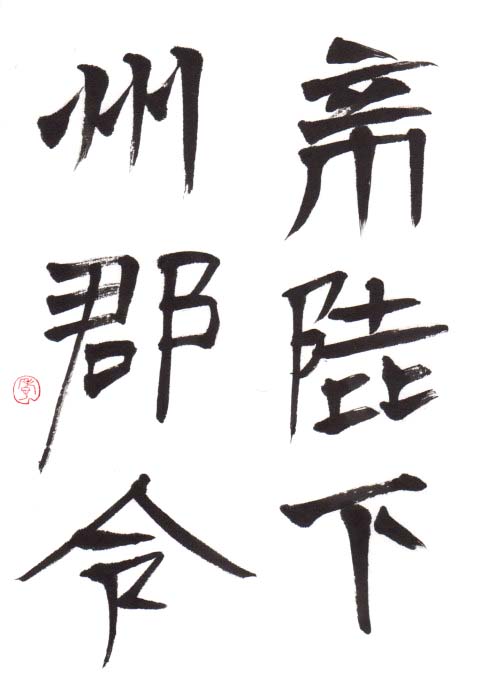 帝陛下
州郡令